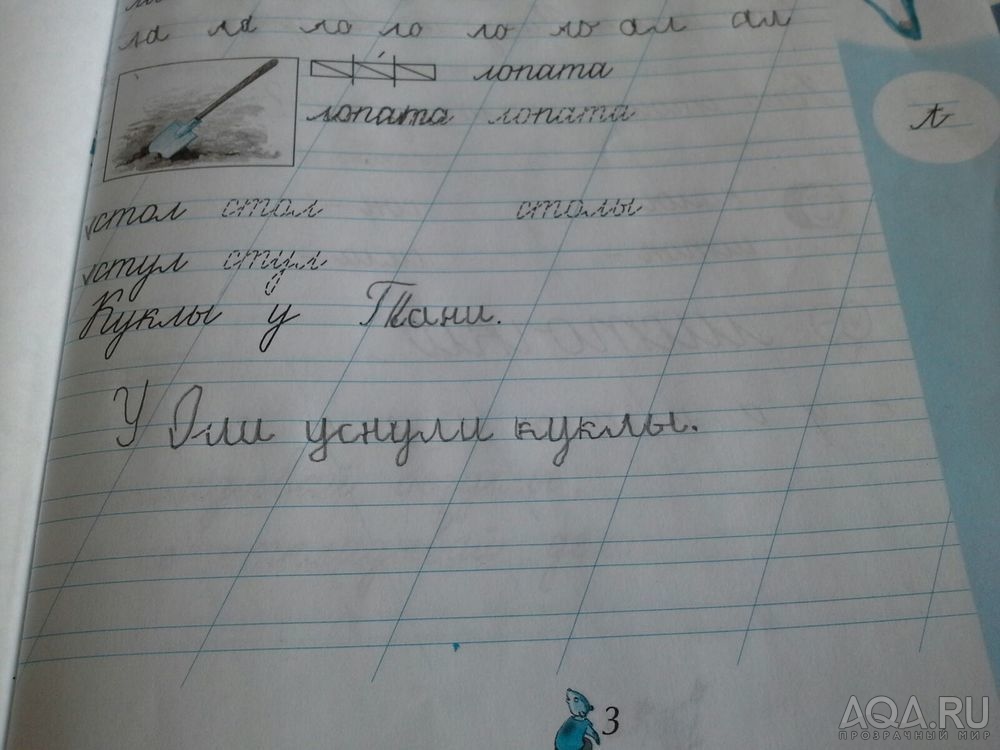 ла ла ло ло ло ло ал ал
лопата
лопата лопата
стол стол столы
стул стул
Куклы у Тани.
У Оли уснули куклы.
л
3
AQA.RU
ПРОЗРАЧНЫЙ МИР